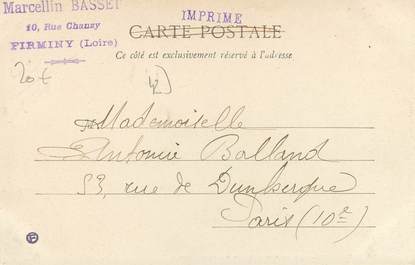 Marcellin BASSET
10, Rue Chanzy
FIRMINY (Loire)
IMPRIME
CARTE POSTALE
Ce côté est exclusivement réservé à l'adresse
20 €
Mademoiselle
Antonie Balland
53, rue de Dunkerque
Paris (10e)